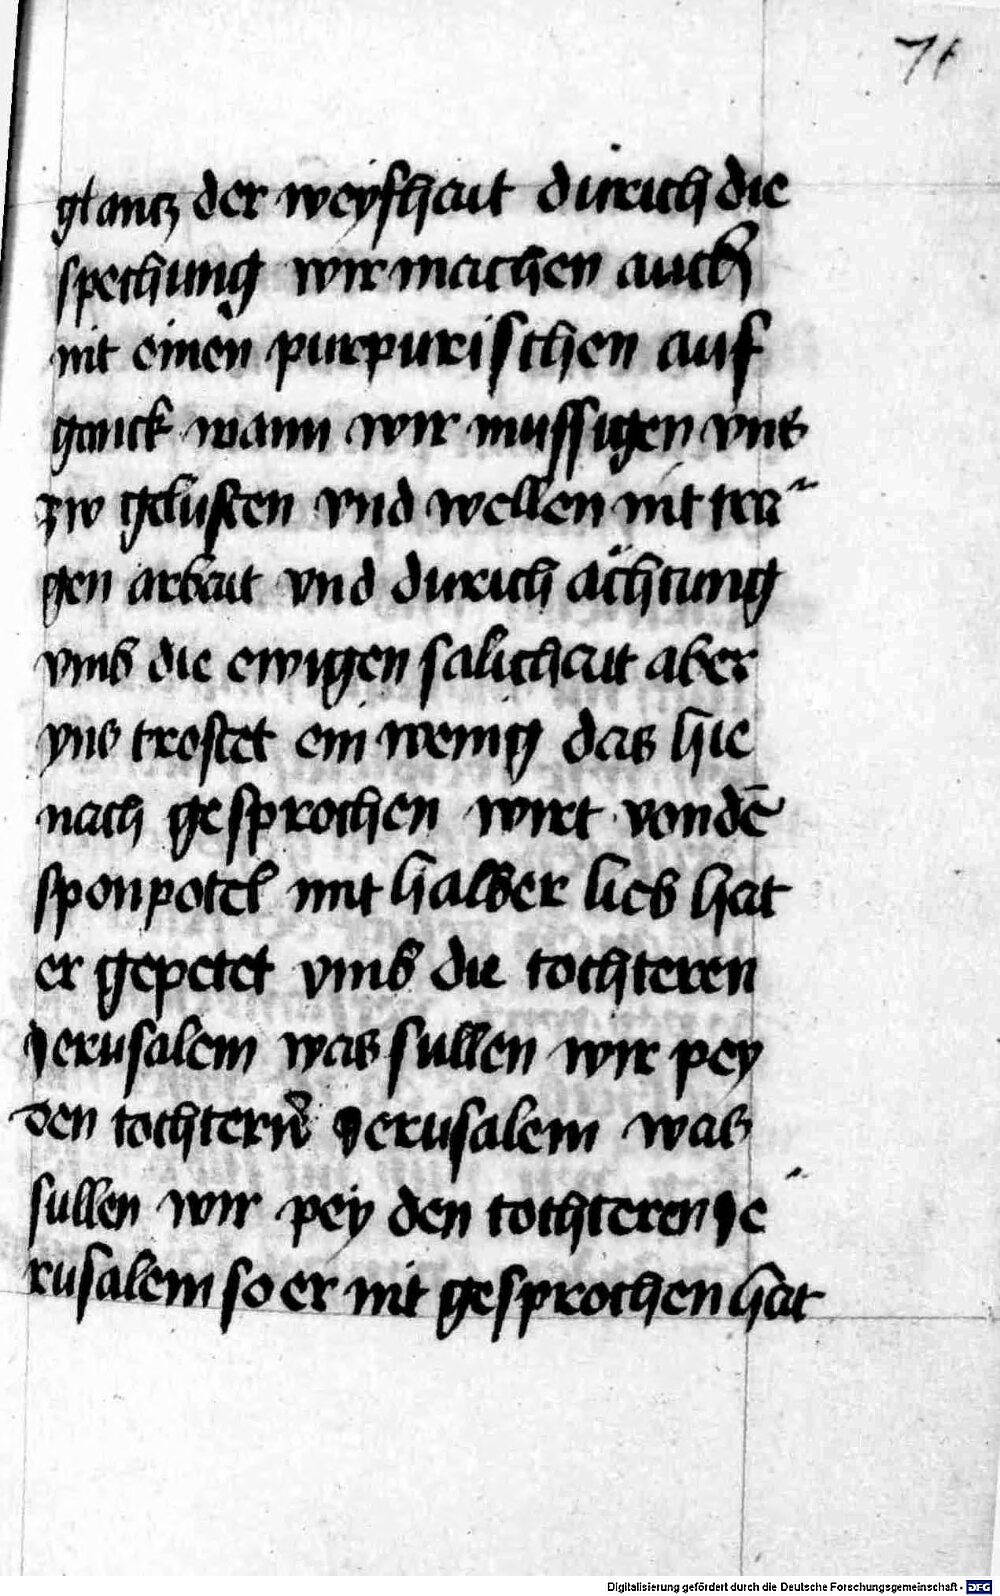 71
glantz der weyshait durich die
spechung wir machen auch
nit einen purpurischen auf
ganck wann wir mussigen vns
zw gelusten vnd wellen nit tra
gen arbait vnd durich ächtung
vmb die ewigen salichait aber
vns trostet ein wenig das hie
nach gesprochen wirt von dē
sponpotel mit halber lieb hat
er gepetet vmb die tochteren
Jerusalem was sullen wir pey
den tochtern Jerusalem was
sullen wir pey den tochteren Je
rusalem so er nit gesprochen hat
Digitalisierung gefördert durch die Deutsche Forschungsgemeinschaft - DFG